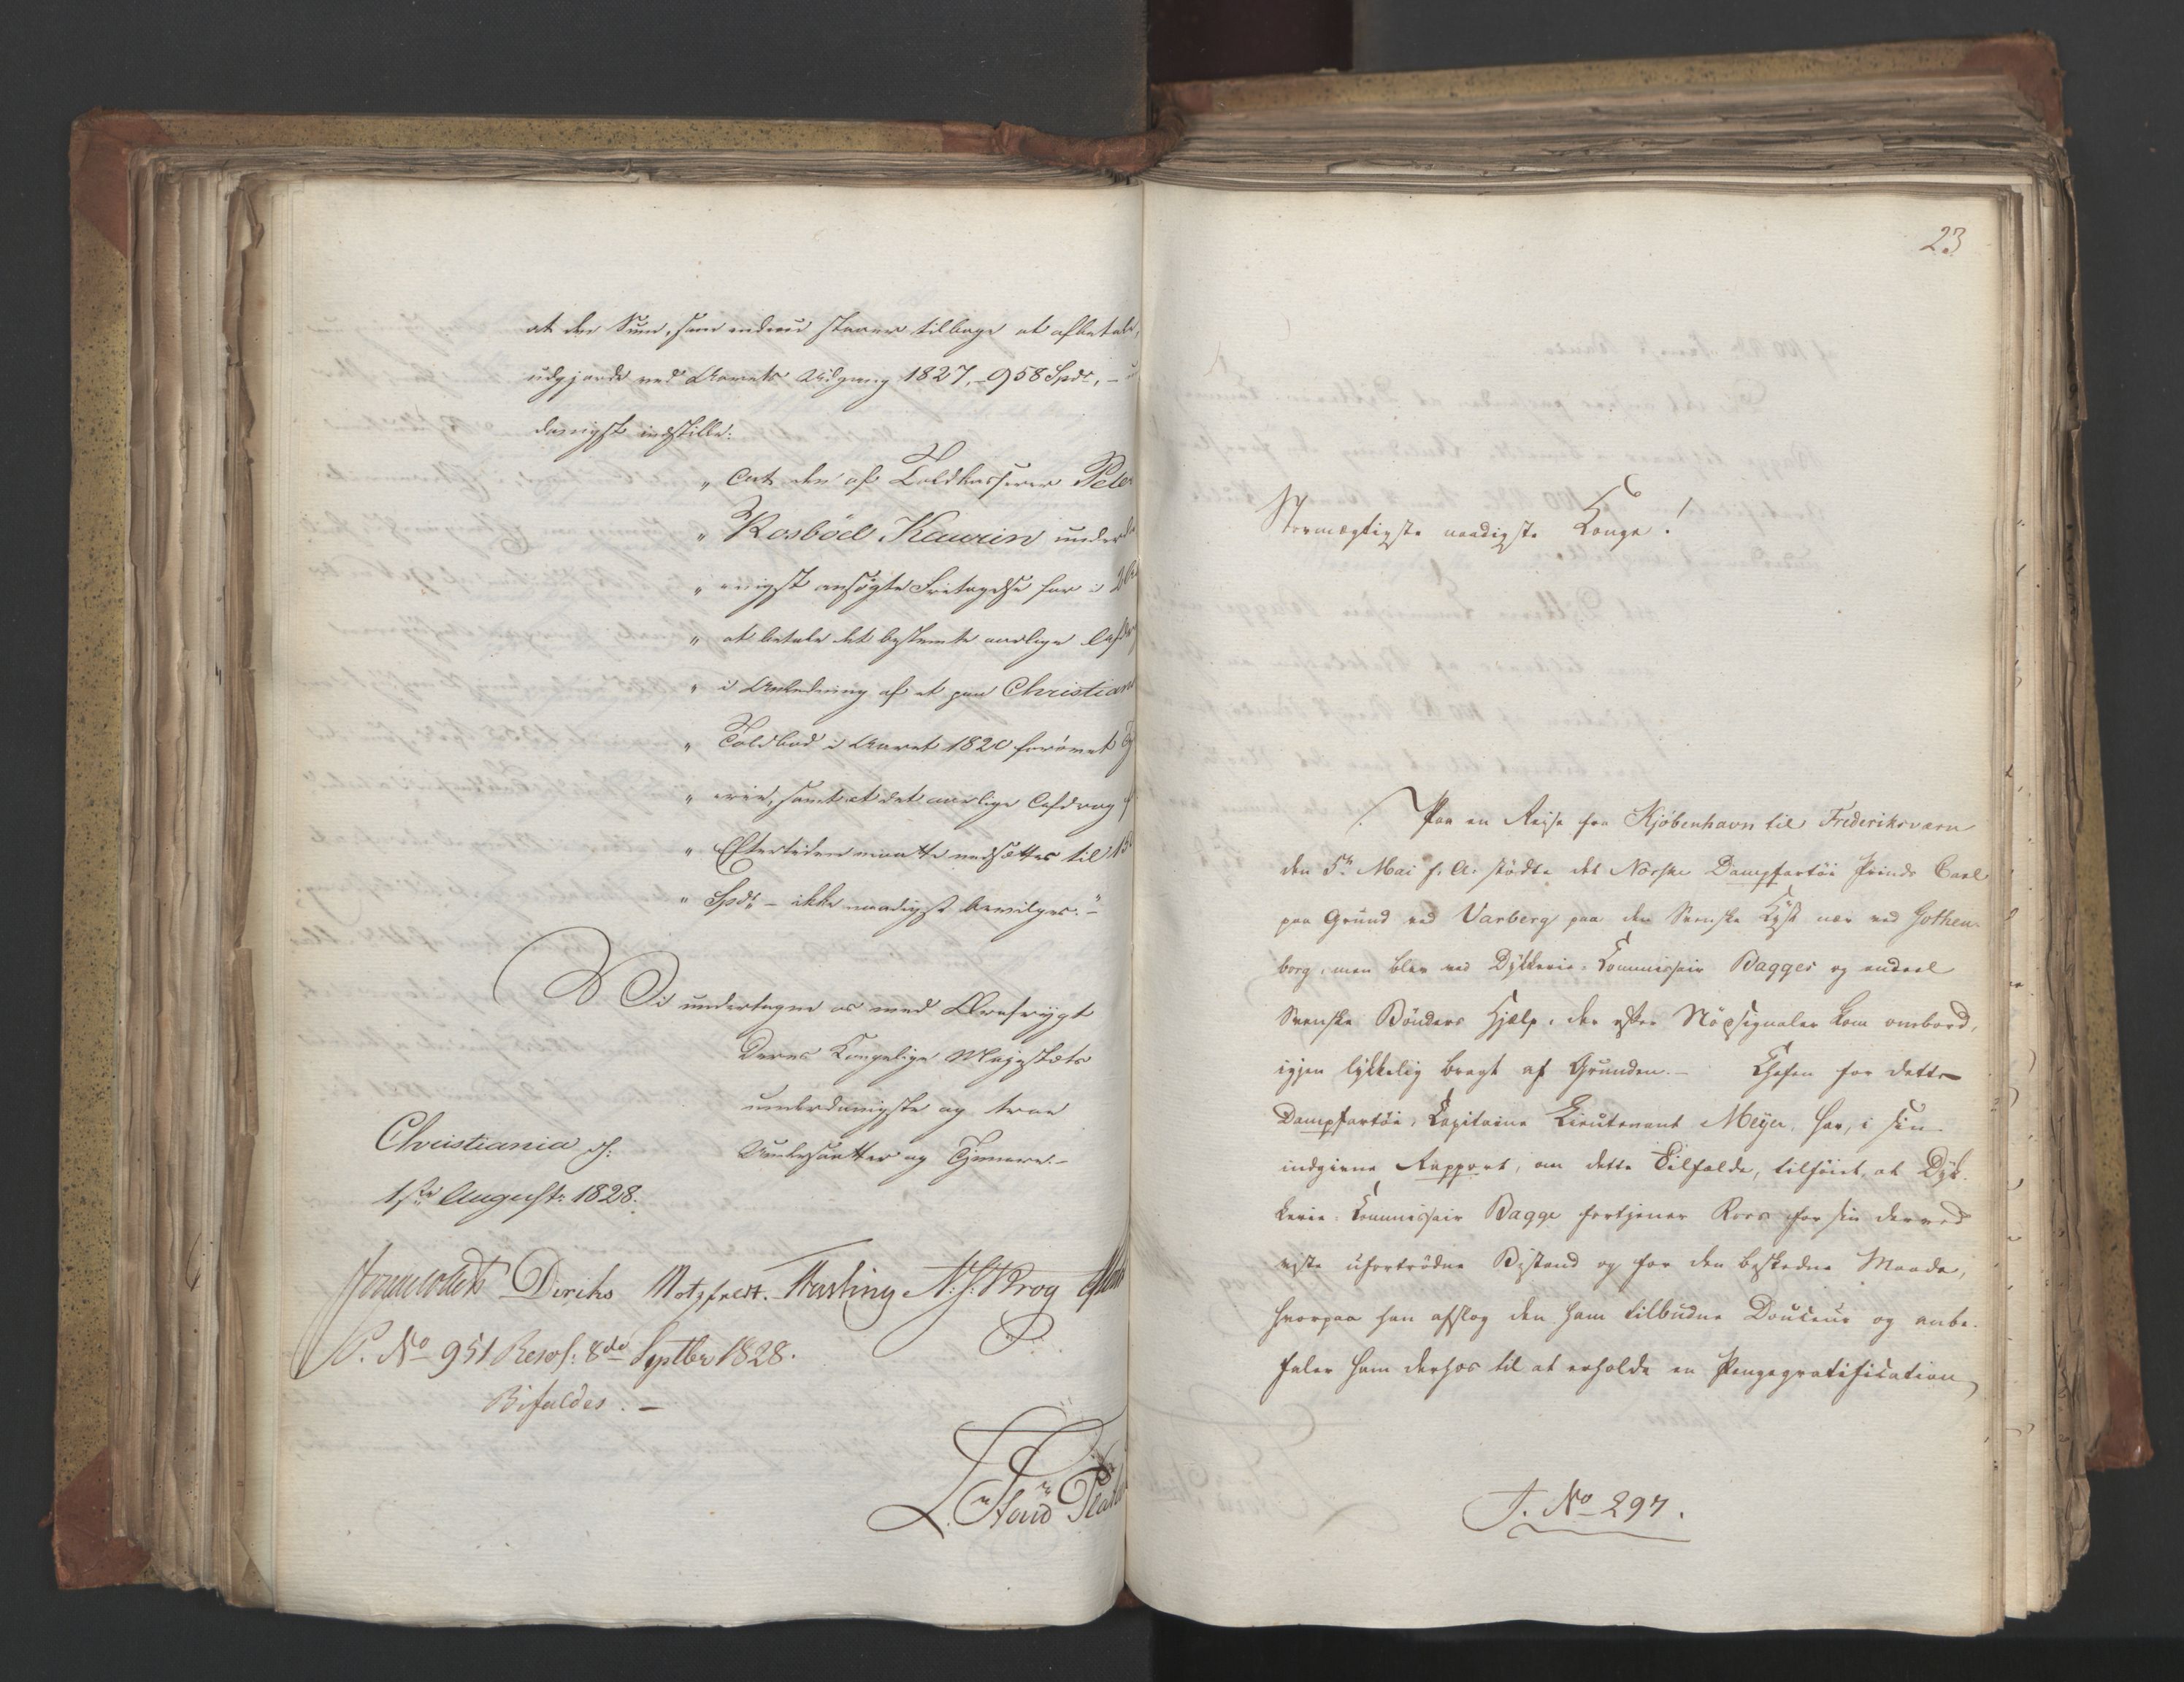 at den Sum, som endnu staaer tilbage at afbetale,
udgjorde ved Aarets Udgang 1827, - 958 Spdr, -
danigst indstille:
„ at den af Toldkasserer Peter
„ Rosböd Kaurin under
„ nigst ansøgte Fritagelse for i 2
„ at betale det bestemte aarlige Afdrag
„ i Anledning af et paa Christian
„ Toldbod i Aaret 1820 forøvet
„ erie, samt at det aarlige Afdrag f
„ Eftertiden maatte nedsættes til 15
„ Spdr - ikke naadigst bevilges." -
Vi undertegne os med Ærefrygt
Deres Kongelige Majestæts
underdanigste og troe
Christiania d:
Undersaatter og Tjenere. -
1ste August 1828.
Diriks Motzfeldt. Fasting N. J. Krog
P. No 951 Resol: 8de Septbr 1828.
Bifaldes. -
23
Stormægtigste naadigste Konge!
Paa en Reise fra Kjøbenhavn til Frederiksværn
den 5te Mai f. A. stödte det Norske Dampfartöi Prinds Carl
paa Grund ved Varberg paa den Svenske Kyst nær ved Gothen-
borg, men blev ved Dykkerie-Commissair Bagges og endeel
Svenske Bönders Hjælp, der efter Nödsignaler kom ombord,
igjen lykkelig bragt af Grunden. - Chefen for dette
Dampfartöi, Capitaine Lieutenant Meyer, har, i sin
indgivne Rapport, om dette Tilfælde, tilföiet, at Dyk-
kerie-Commissair Bagge fortjener Roes for sin derved
viste ufortrödne Bistand og for den beskedne Maade,
hvorpaa han afslog den ham tilbudne Douceur og anbe-
faler ham derhos til at erholde en Pengegratification,
J. No 297.